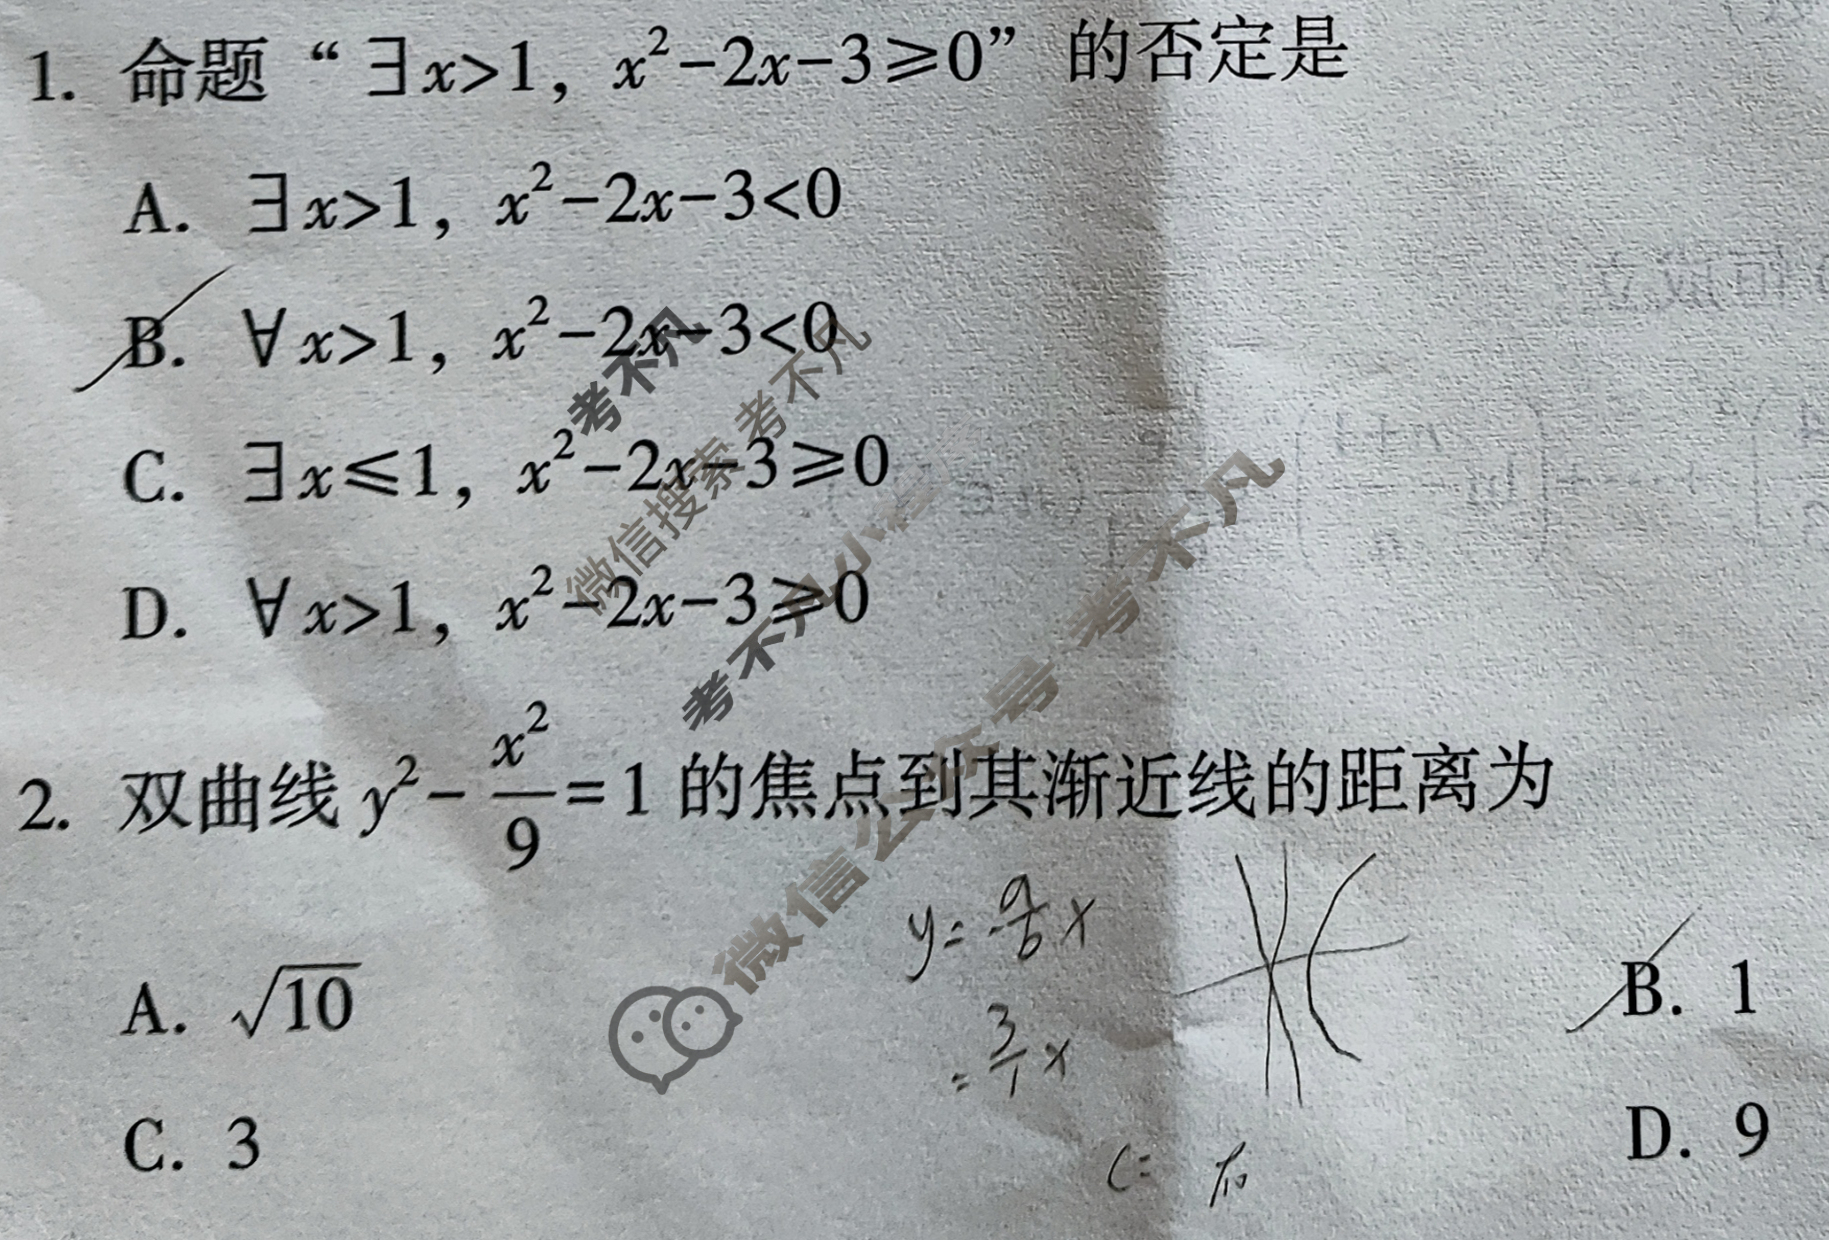 1. 命题“∃x>1，x²-2x-3≥0”的否定是
A. ∃x>1，x²-2x-3<0
B. ∀x>1，x²-2x-3<0
C. ∃x≤1，x²-2x-3≥0
D. ∀x>1，x²-2x-3≥0
2. 双曲线 y²-x²/9=1 的焦点到其渐近线的距离为
y=a/b x
=3/1 x
A. √10
B. 1
C. 3
D. 9
c= √10
考不凡
微信搜索 考不凡
考不凡小程序
微信公众号:考不凡